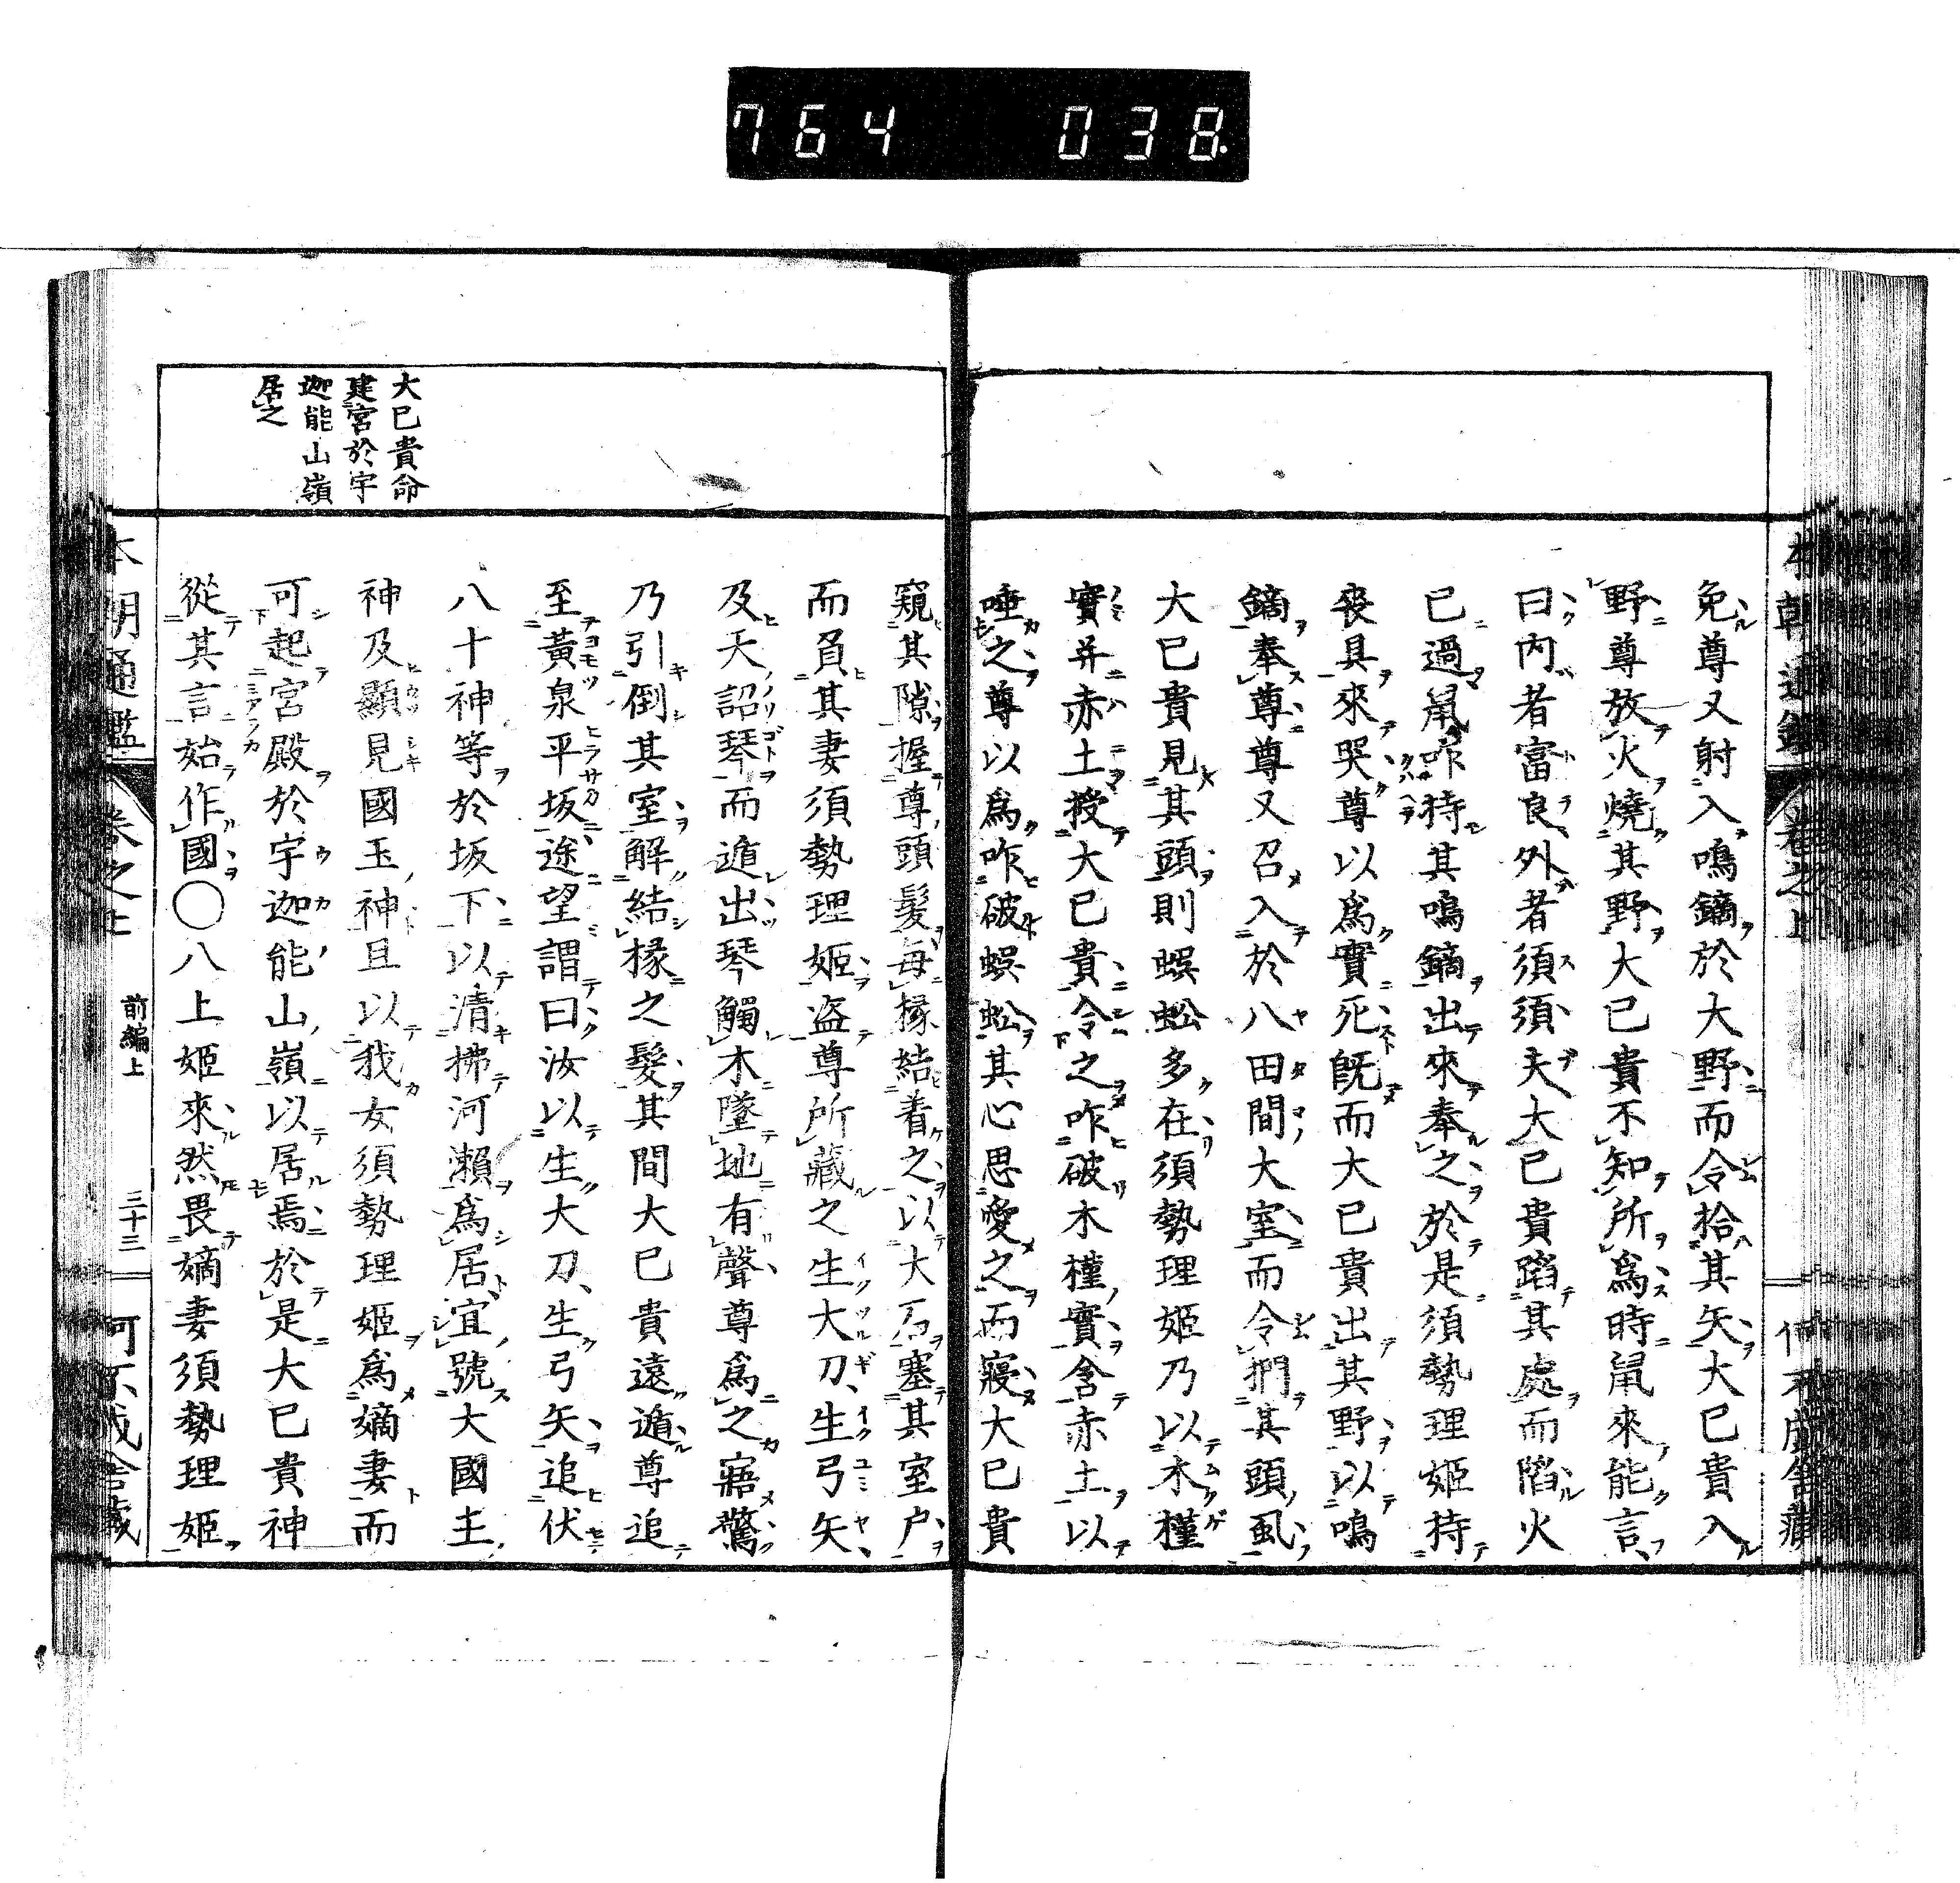 764 038.
免尊又射入鳴鏑於大野而令拾其矢大已貴入
野尊放火燒其野大已貴不知所爲時鼠來能言
曰內者富良外者須須夫大已貴蹈其處而陷火
已過鼠咋持其鳴鏑出來奉之於是須勢理姬持
喪具來哭尊以爲實死既而大已貴出其野以鳴
鏑奉尊尊又召入於八田間大室而令捫其頭虱
大已貴見其頭則蜈蚣多在須勢理姬乃以木槿
實并赤土授大已貴令之咋破木槿實含赤土以
唾之尊以爲咋破蜈蚣其心思愛之而寢大已貴
窺其隙握尊頭髮每椽結着之以大石塞其室户
而負其妻須勢理姬盗尊所藏之生大刀生弓矢
及天詔琴而遁出琴觸木墜地有聲尊爲之寤驚
乃引倒其室解結椽之髮其間大已貴遠遁尊追
至黃泉平坂遙望謂曰汝以生大刀生弓矢追伏
八十神等於坂下以清拂河瀨爲居宜號大國主
神及顯見國玉神且以我女須勢理姬爲嫡妻而
可起宮殿於宇迦能山嶺以居焉於是大已貴神
從其言始作國○八上姬來然畏嫡妻須勢理姬
大已貴命
建宮於宇
迦能山嶺
居之
本朝通鑑
卷之上
前編上
三十三